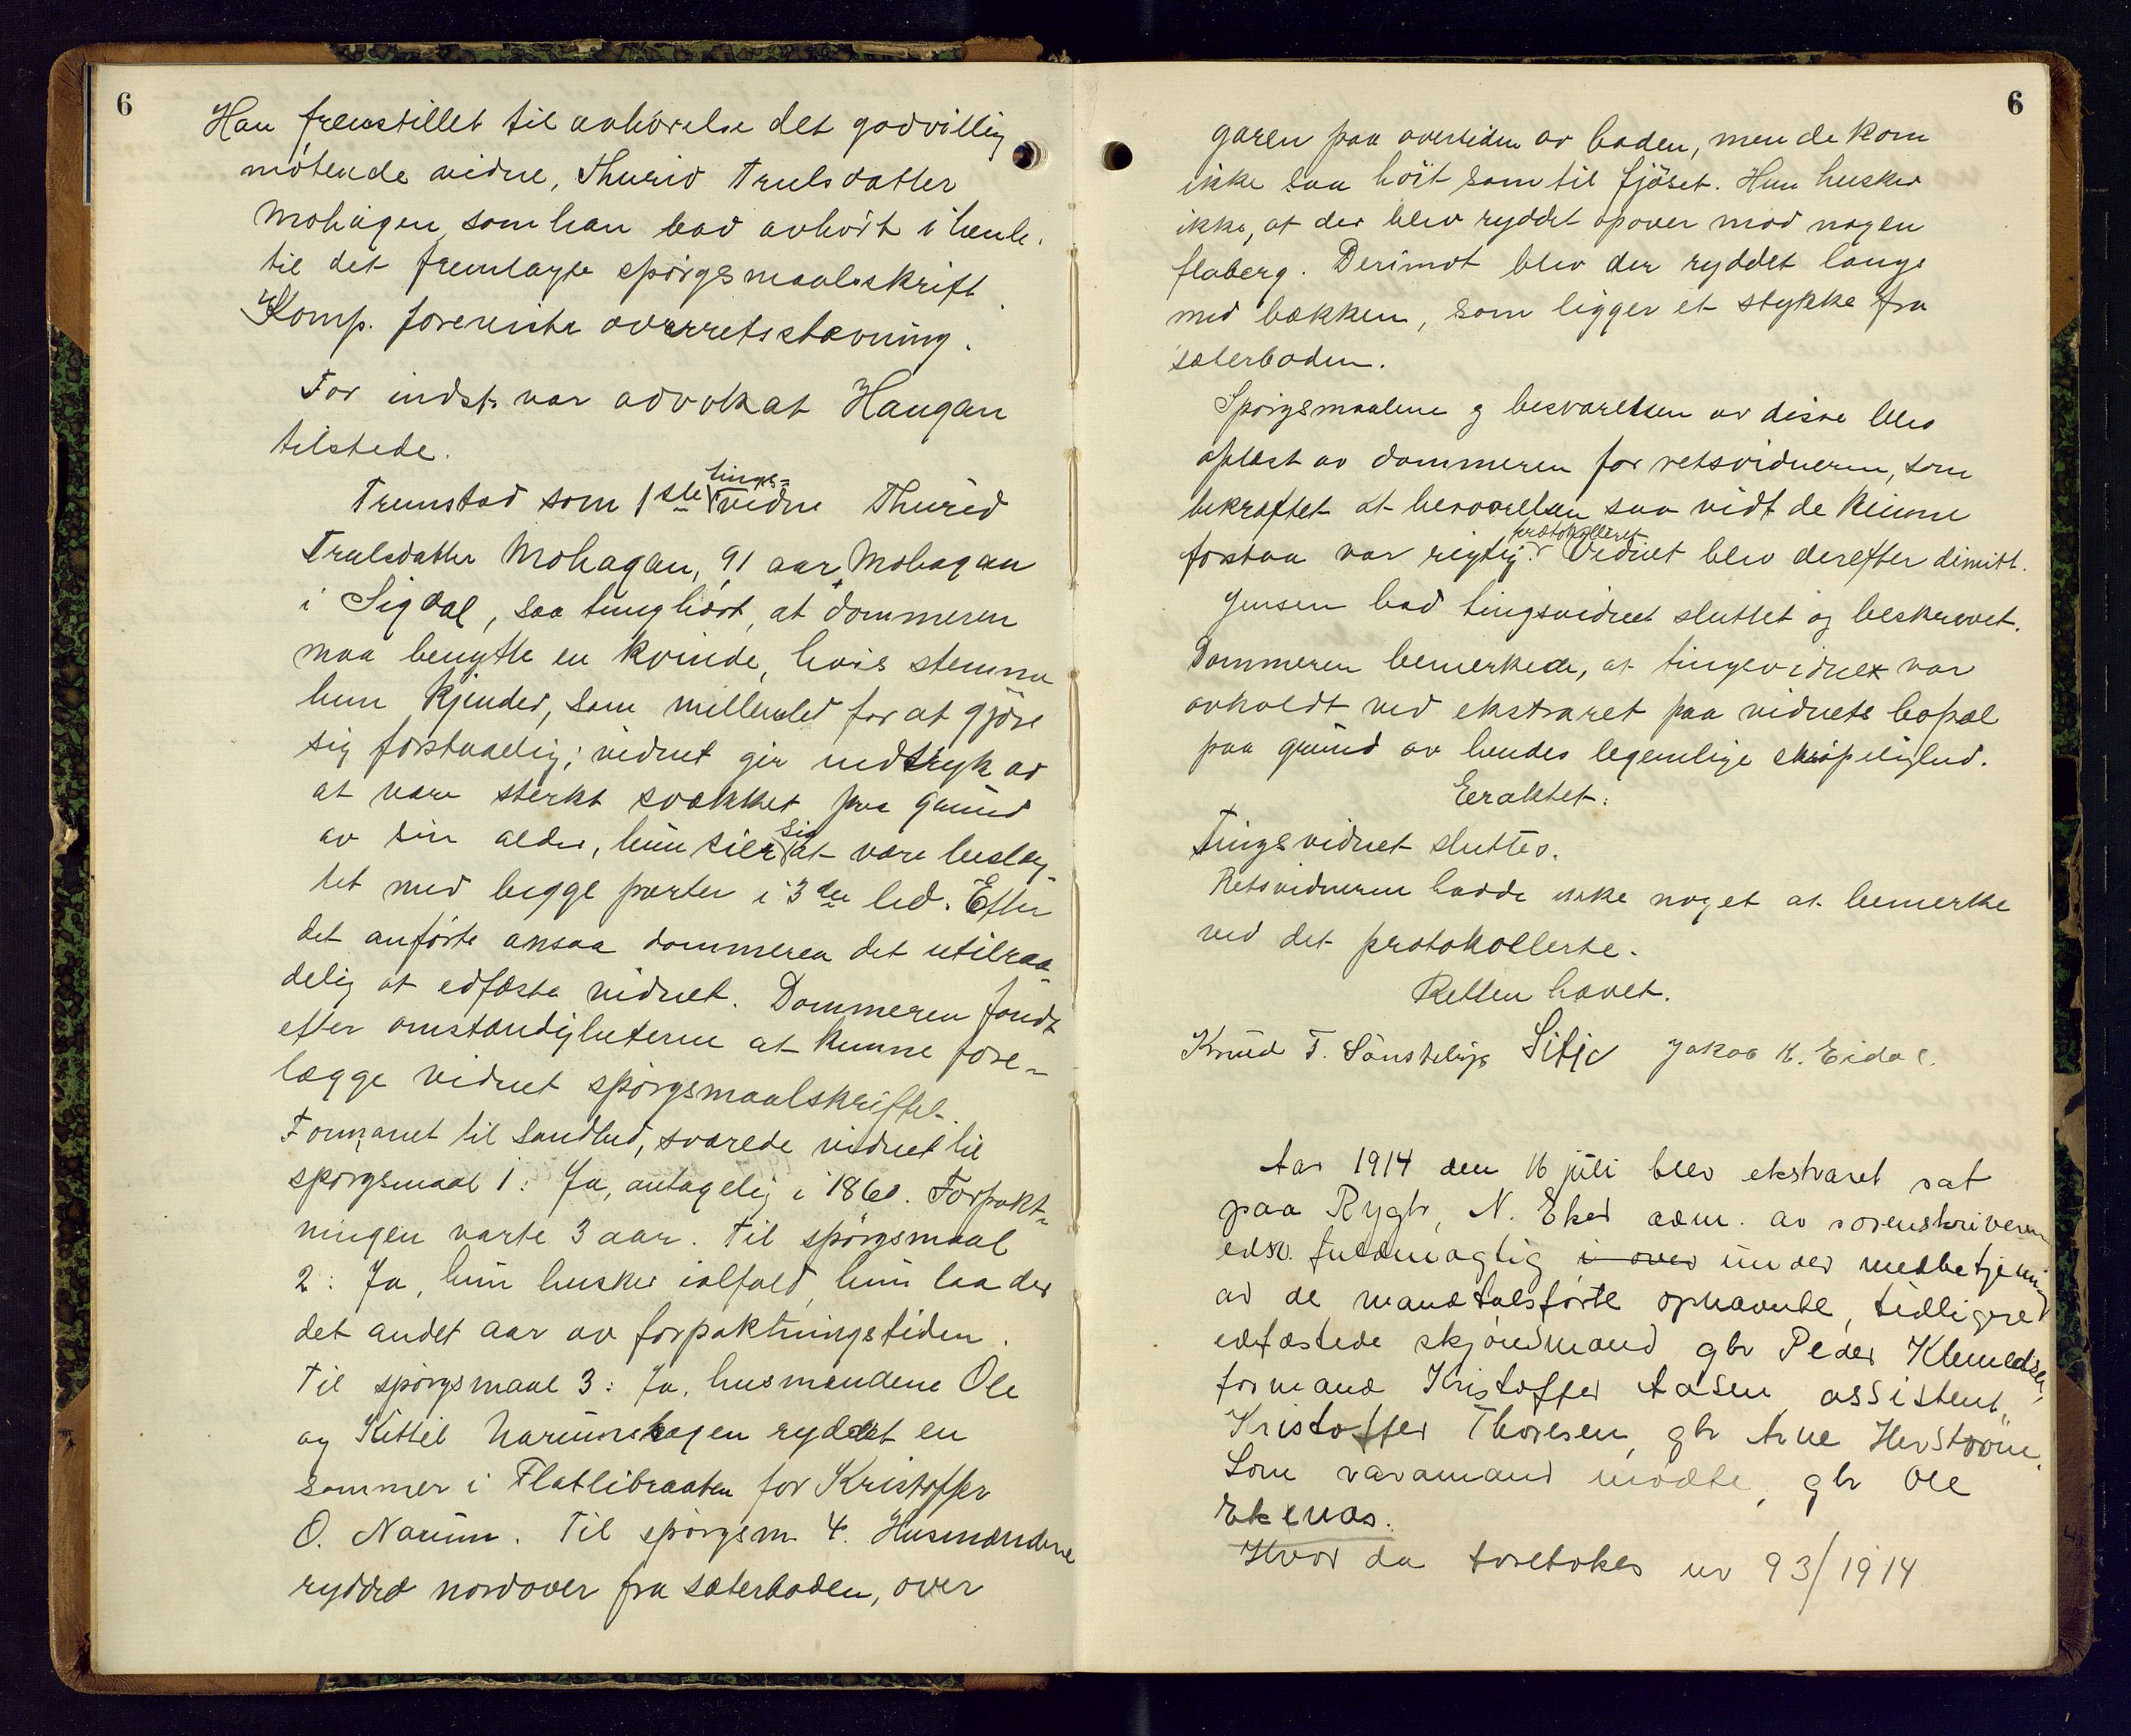 6
Han fremstillet til avhörelse det godvillig
mötende vidne, Thurid Trulsdatter
Mohagen, som han bad avhört i henh.
til det fremlagte spörgsmaalsskrift.
Komp. foreviste overretsstævning.
For indst. var advokat Haugan
tilstede.
Fremstod som 1ste tings-vidne Thurid
Trulsdatter Mohagan, 91 aar, Mohagan
i Sigdal, saa tunghört, at dommeren
maa benytte en kvinde, hvis stemme
hun kjender, som mellemled for at gjöre
sig forstaaelig; vidnet gir indtryk av
at være sterkt svækket paa grund
av sin alder, hun sier sig at være beslæg-
tet med begge parter i 3die led. Efter
det anförte ansaa dommeren det utilraa-
delig at edfæste vidnet. Dommeren fandt
efter omstændigheterne at kunne fore-
lægge vidnet spörgsmaalskriftet.
Formanet til sandhed, svarede vidnet til
spörgsmaal 1: Ja, antagelig i 1860. Forpakt-
ningen varte 3 aar. Til spörgsmaal
2: Ja, hun husker ialfald, hun laa der
det andet aar av forpaktningstiden.
Til spörgsmaal 3: Ja, husmændene Ole
og Kittil Narumshagen ryddet en
sommer i Flatlibraaten for Kristoffer
O. Narum. Til spörgsm. 4. Husmændene
ryddet nordover fra sæterboden, over
6
garen paa oversiden av boden, men de kom
ikke saa höit som til fjöset. Hun husker
ikke, at der blev ryddet opover mod nogen
flaberg. Derimot blev der ryddet langs
med bækken, som ligger et stykke fra
sæterboden.
Spörgsmaalene og besvarelsen av disse blev
oplæst av dommeren for retsvidnerne, som
bekræftet at besvarelsen saa vidt de kunne
forstaa var rigtig protokolleret. Vidnet blev derefter dimitt.
Jensen bad tingsvidnet sluttet og beskrevet.
Dommeren bemerkede, at tingsvidnet var
avholdt ved ekstraret paa vidnets bopæl
paa grund av hendes legemlige skröpelighed.
Eraktet:
Tingsvidnet sluttes.
Retsvidnerne hadde ikke noget at bemerke
ved det protokollerte.
Retten hævet.
Knud T. Sönsteby Jakob K. Eidal.
Aar 1914 den 16 juli blev ekstraret sat
paa Rygh, N. Eker adm. av sorenskriverens
edsv. fuldmægtig i over under medbetjening
av de mandtalsförte opnævnte, tidligere
edfæstede skjönsmænd gbr Peder Klemetsen,
formand Kristoffer Aasen, assistent
Kristoffer Thoresen, gbr Arne Herstrøm.
Som varamand mødte, gbr Ole
Ekenæs.
Hvor da foretokes nr 93/1914